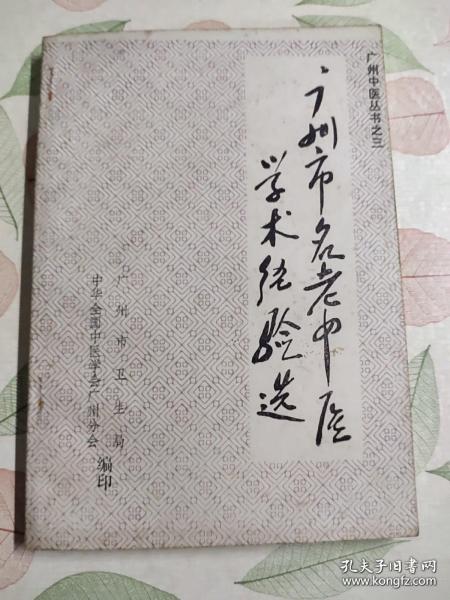 广州中医丛书之三
广州市名老中医
学术经验选
广州市卫生局
中华全国中医学会广州分会
编印
孔夫子旧书网
www.kongfz.com